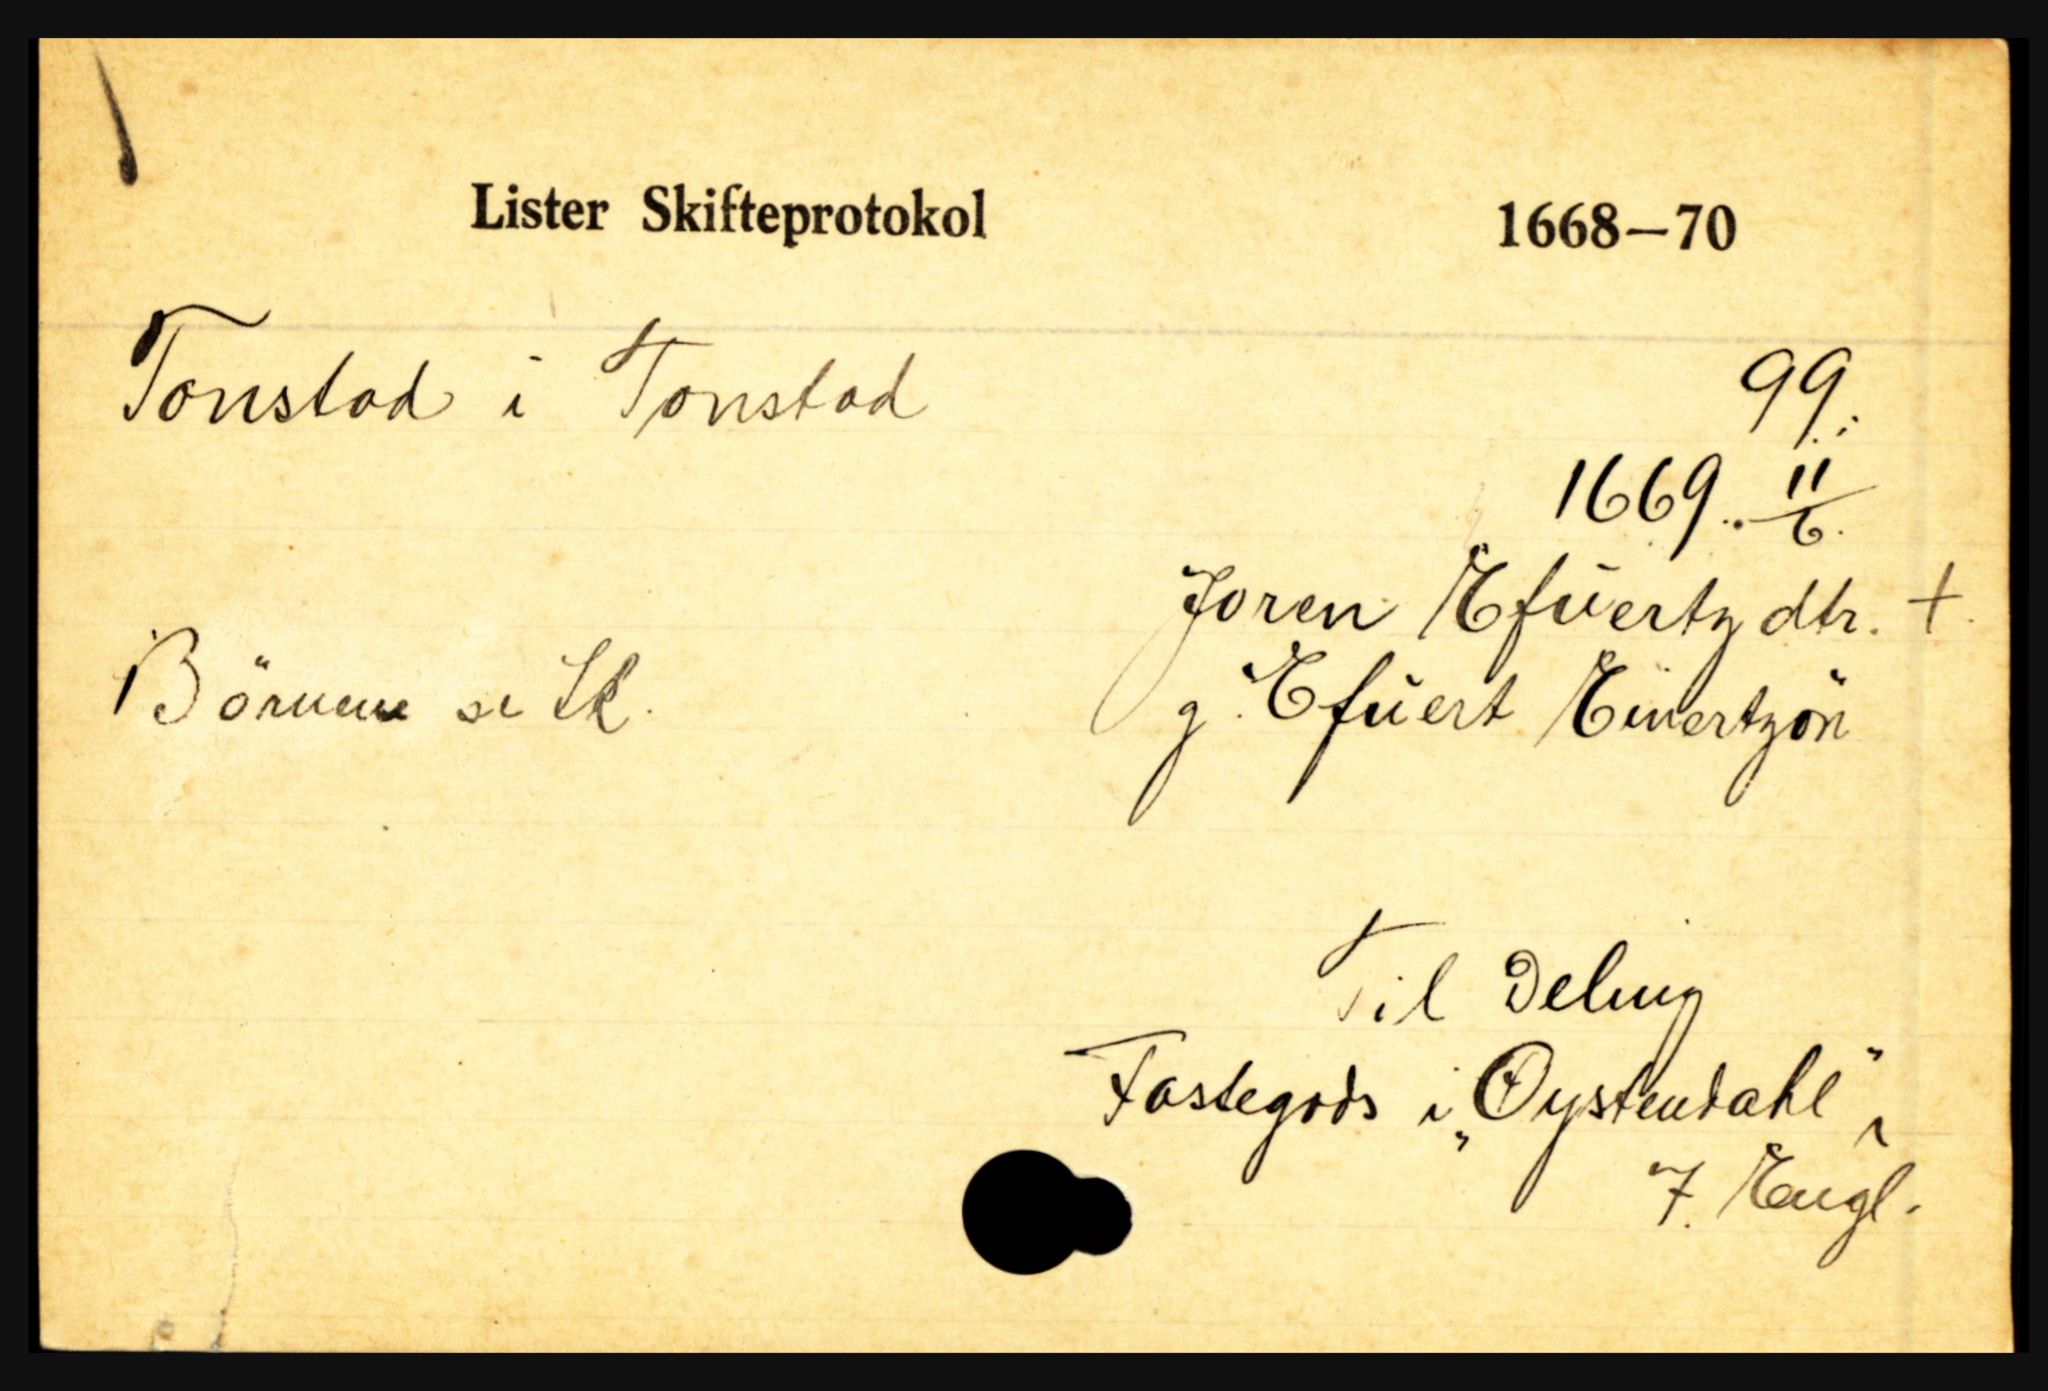 Lister Skifteprotokol 1668–70
Tonstad i Tonstad 99.
1669. 11/6.
Joren Efüertz dtr. †
Börnene se Sk. g. Efüert Eivertzön
Til Deling
Fastegods i „Oystendahl",
7. Engl.